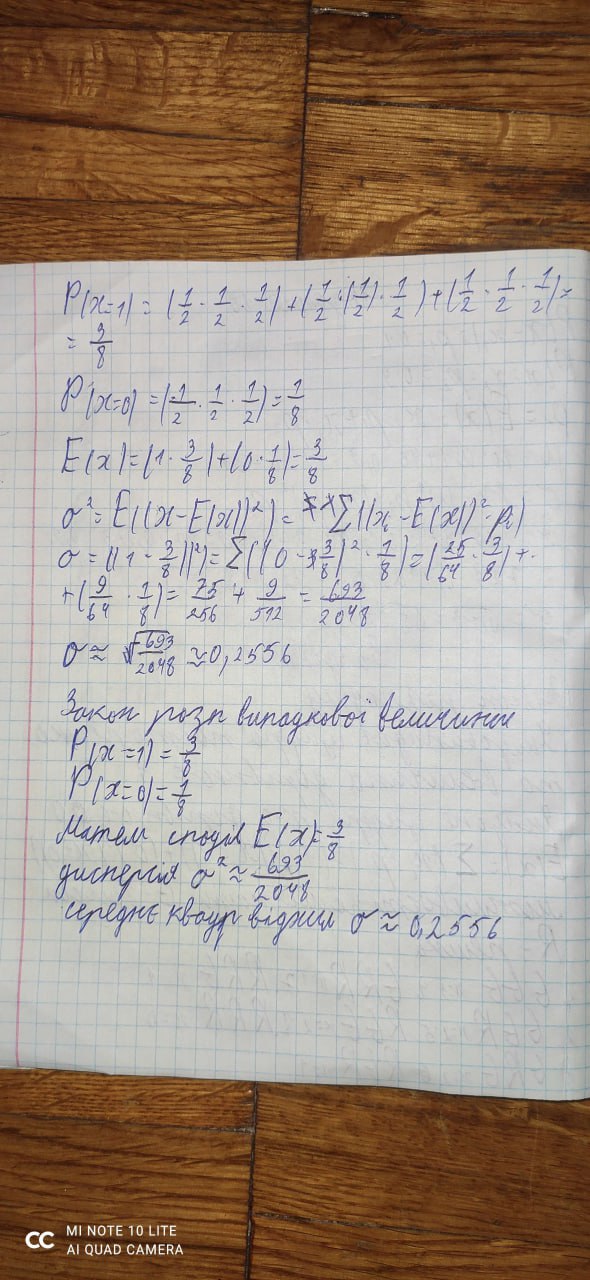 P(x=1) = (1/2 · 1/2 · 1/2) + (1/2 · (1/2) · 1/2) + (1/2 · 1/2 · 1/2) =
= 3/8
P(x=0) = (1/2 · 1/2 · 1/2) = 1/8
E(x) = (1 · 3/8) + (0 · 1/8) = 3/8
σ² = E((x-E(x))²) = Σ((xᵢ - E(x))² · pᵢ)
σ = ((1 - 3/8))²) = Σ((0 - 3/8)² · 1/8) = (25/64 · 3/8) +
+ (9/64 · 1/8) = 75/256 + 9/512 = 693/2048
σ ≈ √693/2048 ≈ 0,2556
Закон розп випадкової величини
P(x=1) = 3/8
P(x=0) = 1/8
Матем сподів E(x) = 3/8
дисперсія σ² ≈ 693/2048
середнє квадр відхил σ ≈ 0,2556
MI NOTE 10 LITE
AI QUAD CAMERA